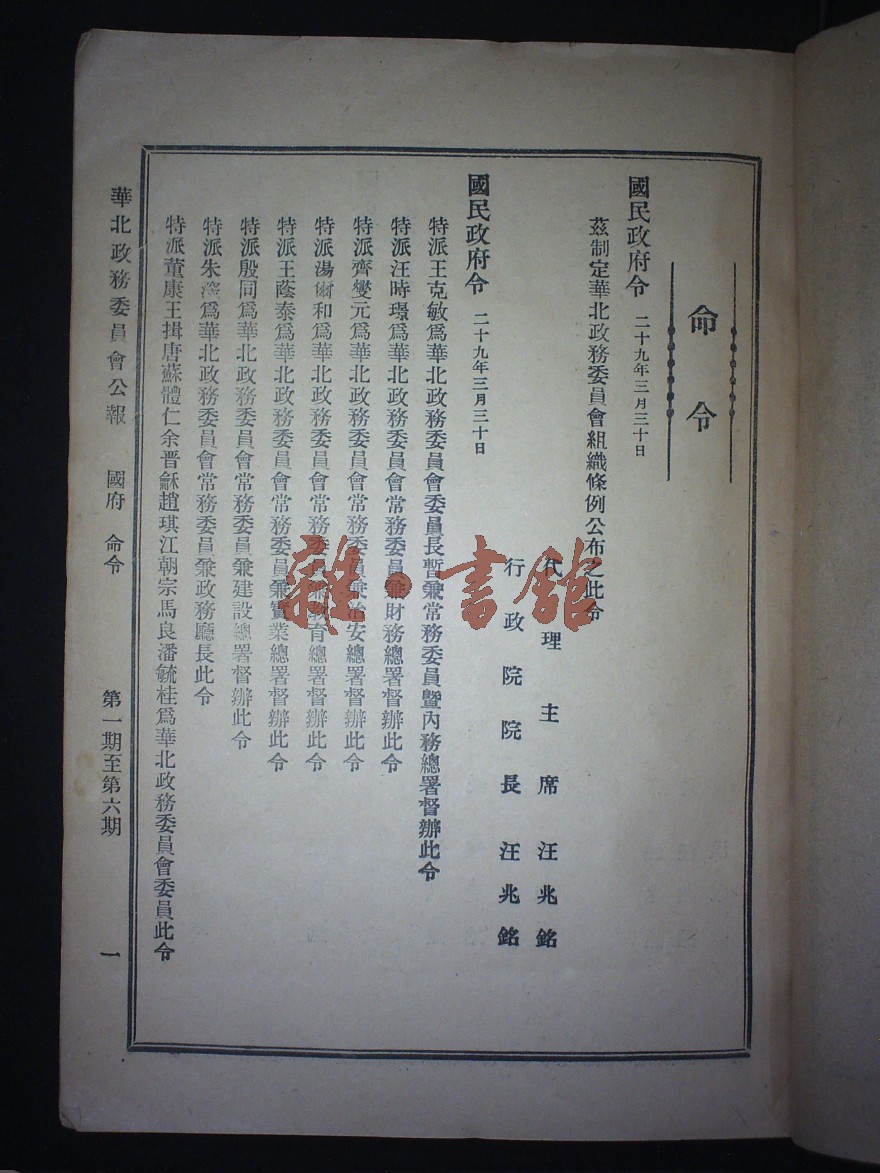 命令
國民政府令 二十九年三月三十日
茲制定華北政務委員會組織條例公布之此令
代理主席汪兆銘
行政院院長汪兆銘
國民政府令 二十九年三月三十日
特派王克敏爲華北政務委員會委員長暫兼常務委員暨內務總署督辦此令
特派汪時璟爲華北政務委員會常務委員兼財務總署督辦此令
特派齊燮元爲華北政務委員會常務委員兼治安總署督辦此令
特派湯爾和爲華北政務委員會常務委員兼教育總署督辦此令
特派王蔭泰爲華北政務委員會常務委員兼實業總署督辦此令
特派殷同爲華北政務委員會常務委員兼建設總署督辦此令
特派朱深爲華北政務委員會常務委員兼政務廳長此令
特派董康王揖唐蘇體仁余晋龢趙琪江朝宗馬良潘毓桂爲華北政務委員會委員此令
華北政務委員會公報 國府 命令 第一期至第六期 一
雜·書館